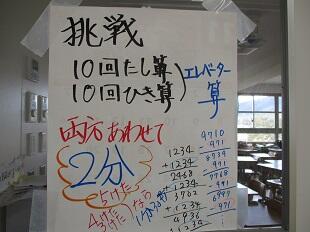 挑戦
10回たし算
10回ひき算
エレベーター
算
両方あわせて
2分
5けた
4けた
3けた
なら
1分30秒
1234
+1234
2468
+1234
3702
+1234
4936
1234
9710
-971
8739
-971
7768
-971
6797
971